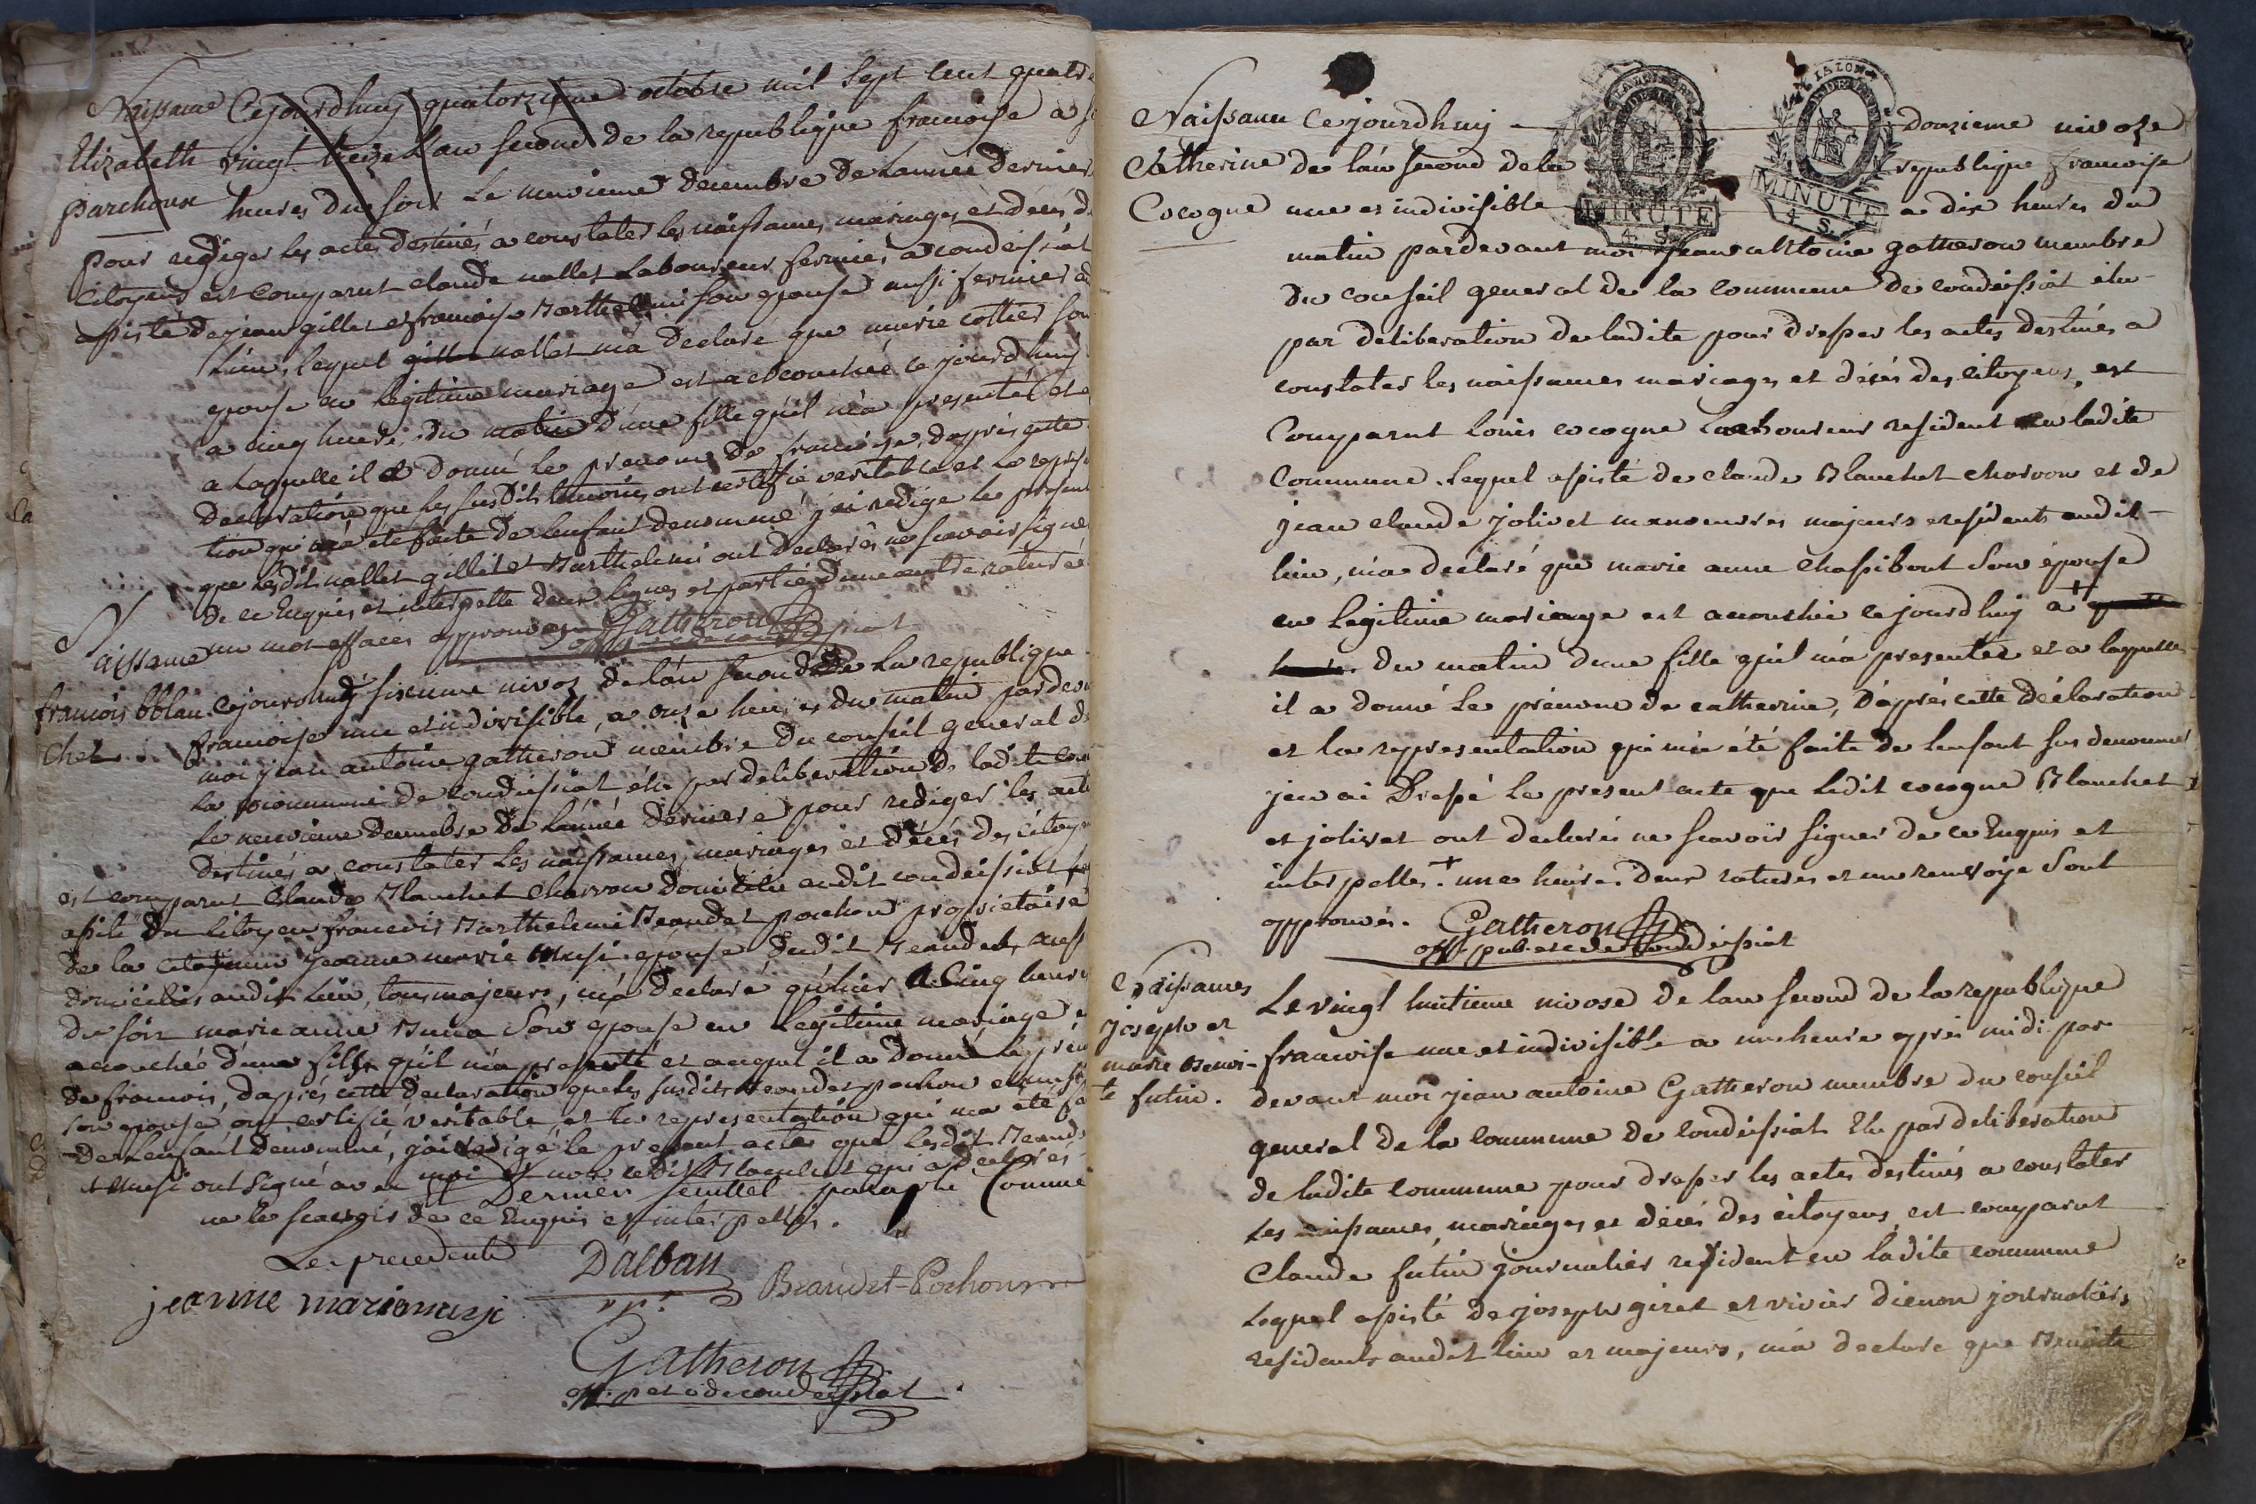 Naissance Cejourdhuy quatorzieme octobre mil sept cent quatre
Elizabeth vingt treize L'an second de la republique francoise a
parchoux heures du soir Le neuvieme decembre de Lannée derniere
pour rediger les actes destinés a constater les naissances, mariages et décés d
Citoyens est comparut claude nallet Laboureur fermier a condeissiat
assisté de jean gillet et francoise Barthelemi son epouse aussi fermier
Lieu, lequel gillet nallet m'a declaré que marie cottier son
epouse en legitime mariage est accouchée ce jourdhuy
a cinq heures du matin d'une fille qu'il m'a presenté et
a Laquelle il a donné le prenom de francoise, d'après cette
declaration que les susdits temoins ont certifié veritable et la repres
tion qui m'a été faite de lenfant denommé j'ai redigé le present
que lesdit nallet gillet et Barthelemi ont declarés ne scavoir signer
de ce Enquis et interpellé deux lignes et partie d'une autre raturé
un mot effacés approuvés Gatheron
off. p. et c. de condeissiat
Naissance
francois blan cejourdhuy sixieme nivoz de lan second de La republique
chet. francoise une et indivisible, a onze heures du matin pardevant
moi jean antoine gatheron membre du conseil general de
La commune de condeissiat élu par deliberation de ladite com
Le neuvieme decembre de Lannée derniere pour rediger les actes
destinés a constater Les naissances, mariages et décés des citoy
est comparut Claude Blanchet charron domicilié audit condeissiat
assisté du Citoyen francois Barthelemi Beaudet pochon proprietaire
de la citoyenne jeanne marie musi epouse dudit Beaudet, aussi
domiciliés audit Lieu, tous majeurs, m'a declaré qu'hier a Cinq heures
du soir marie anne Buna son epouse en Legitime mariage
accouchée d'une fille qu'il m'a presenté et auquel il a donné le prén
de francois, d'après cette declaration que les susdits Beaudet pochon et musi
son epouse ont certifié veritable, et la representation qui m'a été fa
de Lenfant denommé, j'ai redigé le present acte que lesdit Beaud
et musi ont signé avec moi et non ledit Blanchet qui a declarés
Dernier feuillet paraphé Comme
ne le scavoir de ce Enquis et interpellés.
Le precedent Dalban
jeanne marie musi Beaudet-Pochon
Gatheron
off. p. et c. de condeissiat
Naissance Cejourdhuy douzieme nivoze
Catherine de lan second de la republique francoise
Cocogne une et indivisible a dix heures du
MINUTE
4. S.
MINUTE
4. S.
matin pardevant moi jean antoine gatheron membre
du conseil general de la commune de condeissiat élu
par deliberation de ladite pour dresser les actes destinés a
constater les naissances mariages et décés des citoyens, est
Comparut Louis cocogne Laboureur resident en ladite
Commune. Lequel assisté de claude Blanchet charron et de
jean claude jolivet manoeuvres majeurs residents audit
lieu, m'a declaré que marie anne chassibout son épouse
en Legitime mariage est accouchée ce jourdhuy a +
du matin d'une fille qu'il m'a presentée et a laquelle
il a donné Le prénom de catherine, d'après cette déclaration
et la representation qui m'a été faite de lenfant sus denommé
j'en ai Dressé le present acte que ledit cocogne Blanchet
et jolivet ont declarés ne scavoir signer de ce Enquis et
interpellés. + une heure. Deux ratures et un renvoye sont
approuvés. Gatheron
off. pub. et c. de condeissiat
Naissances Le vingt huitieme nivose de lan second de la republique
joseph et francoise une et indivisible a une heure après midi par
marie Benoi-
te futin. devant moi jean antoine Gatheron membre du conseil
general de la commune de condeissiat Elu par deliberation
de ladite commune pour dresser les actes destinés a constater
Les naissances, mariages et décés des citoyens, est comparut
Claude futin journalier resident en ladite commune
Lequel assisté de joseph giret et vivier dienon journaliers
residants audit lieu et majeurs, m'a declaré que Benoite